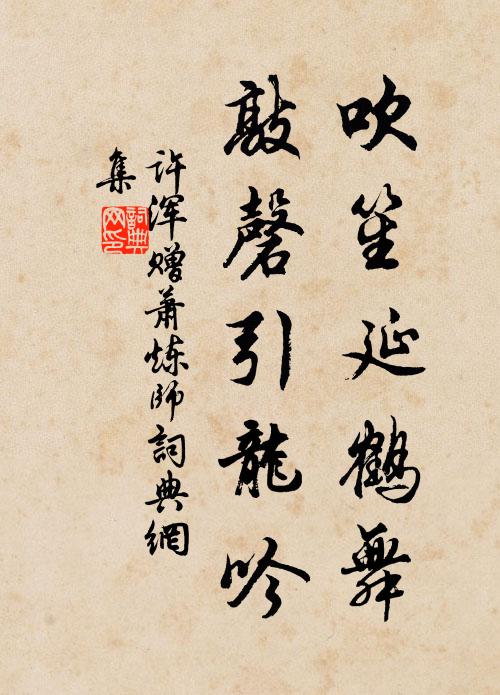 吹笙延鶴舞
敲磬引龍吟
许浑赠萧炼師詞典網
集
詞典
网印